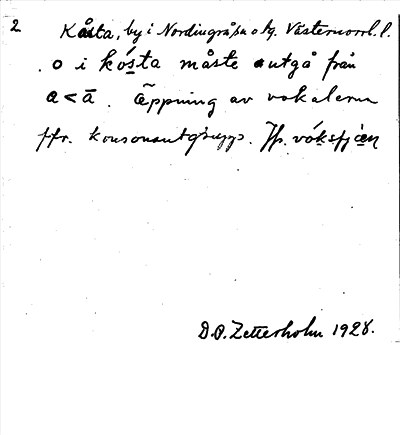 2 Kåsta, by i Nordingrå sn o tg. Västernorrl. l.
. o i kó̱sta måste utgå från
a < ā . Öppning av vokalerna
ffr. konsonantgrupp. Jfr. vó̱ksfjæ̱n
D.O. Zetterholm 1928.